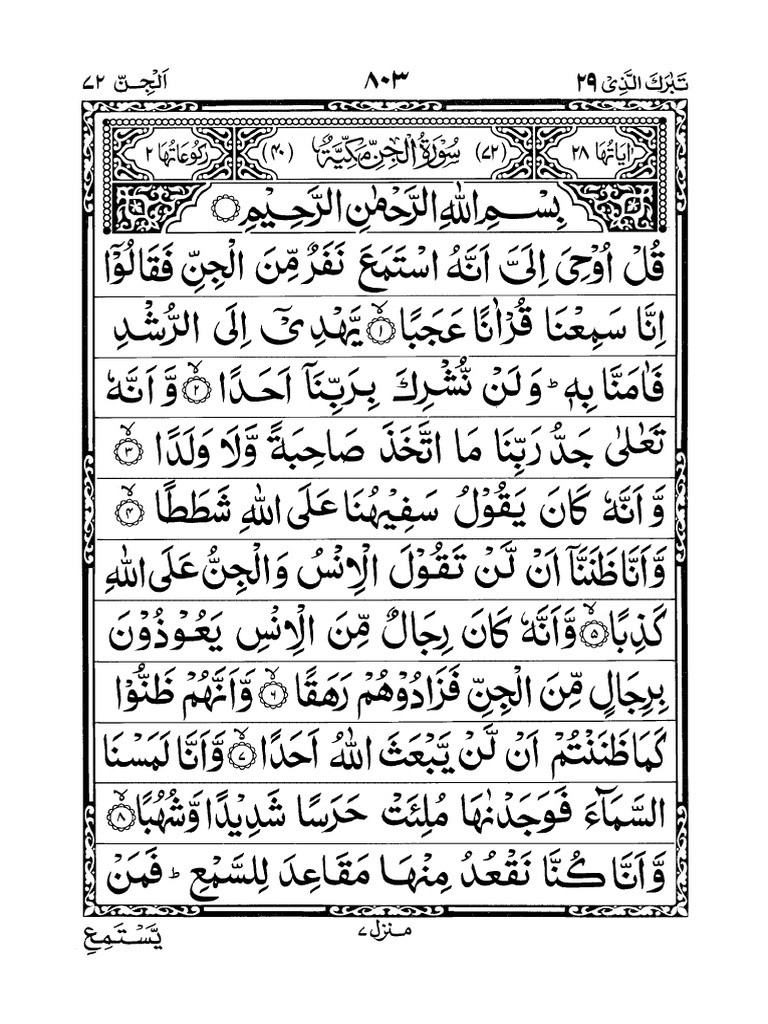 تَبٰرَكَ الَّذِیْ ۲۹ ۸۰۳ اَلْجِنّ ۷۲
اٰیَاتُهَا ۲۸ (۷۲) سُوْرَةُ الْجِنِّ مَكِّیَّةٌ (۴۰) رُكُوْعَاتُهَا ۲
بِسْمِ اللّٰهِ الرَّحْمٰنِ الرَّحِیْمِ
قُلْ اُوْحِیَ اِلَیَّ اَنَّهُ اسْتَمَعَ نَفَرٌ مِّنَ الْجِنِّ فَقَالُوْۤا
اِنَّا سَمِعْنَا قُرْاٰنًا عَجَبًا ۙ۱ یَّهْدِیْۤ اِلَی الرُّشْدِ
فَاٰمَنَّا بِهٖ ؕ وَ لَنْ نُّشْرِكَ بِرَبِّنَاۤ اَحَدًا ۙ۲ وَّ اَنَّهٗ
تَعٰلٰی جَدُّ رَبِّنَا مَا اتَّخَذَ صَاحِبَةً وَّلَا وَلَدًا ۙ۳
وَّ اَنَّهٗ كَانَ یَقُوْلُ سَفِیْهُنَا عَلَی اللّٰهِ شَطَطًا ۙ۴
وَّ اَنَّا ظَنَنَّاۤ اَنْ لَّنْ تَقُوْلَ الْاِنْسُ وَ الْجِنُّ عَلَی اللّٰهِ
كَذِبًا ۙ۵ وَّ اَنَّهٗ كَانَ رِجَالٌ مِّنَ الْاِنْسِ یَعُوْذُوْنَ
بِرِجَالٍ مِّنَ الْجِنِّ فَزَادُوْهُمْ رَهَقًا ۙ۶ وَّ اَنَّهُمْ ظَنُّوْا
كَمَا ظَنَنْتُمْ اَنْ لَّنْ یَّبْعَثَ اللّٰهُ اَحَدًا ۙ۷ وَّ اَنَّا لَمَسْنَا
السَّمَآءَ فَوَجَدْنٰهَا مُلِئَتْ حَرَسًا شَدِیْدًا وَّ شُهُبًا ۙ۸
وَّ اَنَّا كُنَّا نَقْعُدُ مِنْهَا مَقَاعِدَ لِلسَّمْعِ ؕ فَمَنْ
منزل ۷
یَّسْتَمِعِ